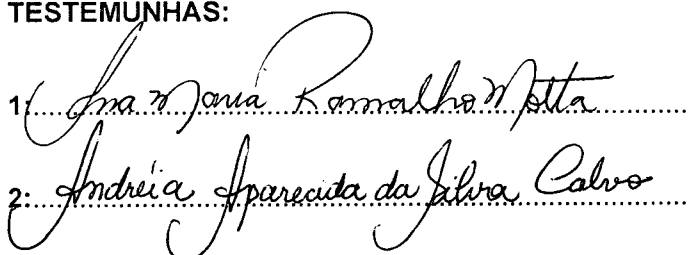 TESTEMUNHAS:
1: Ana Maria Ramalho Motta
2: Andréia Aparecida da Silva Calvo